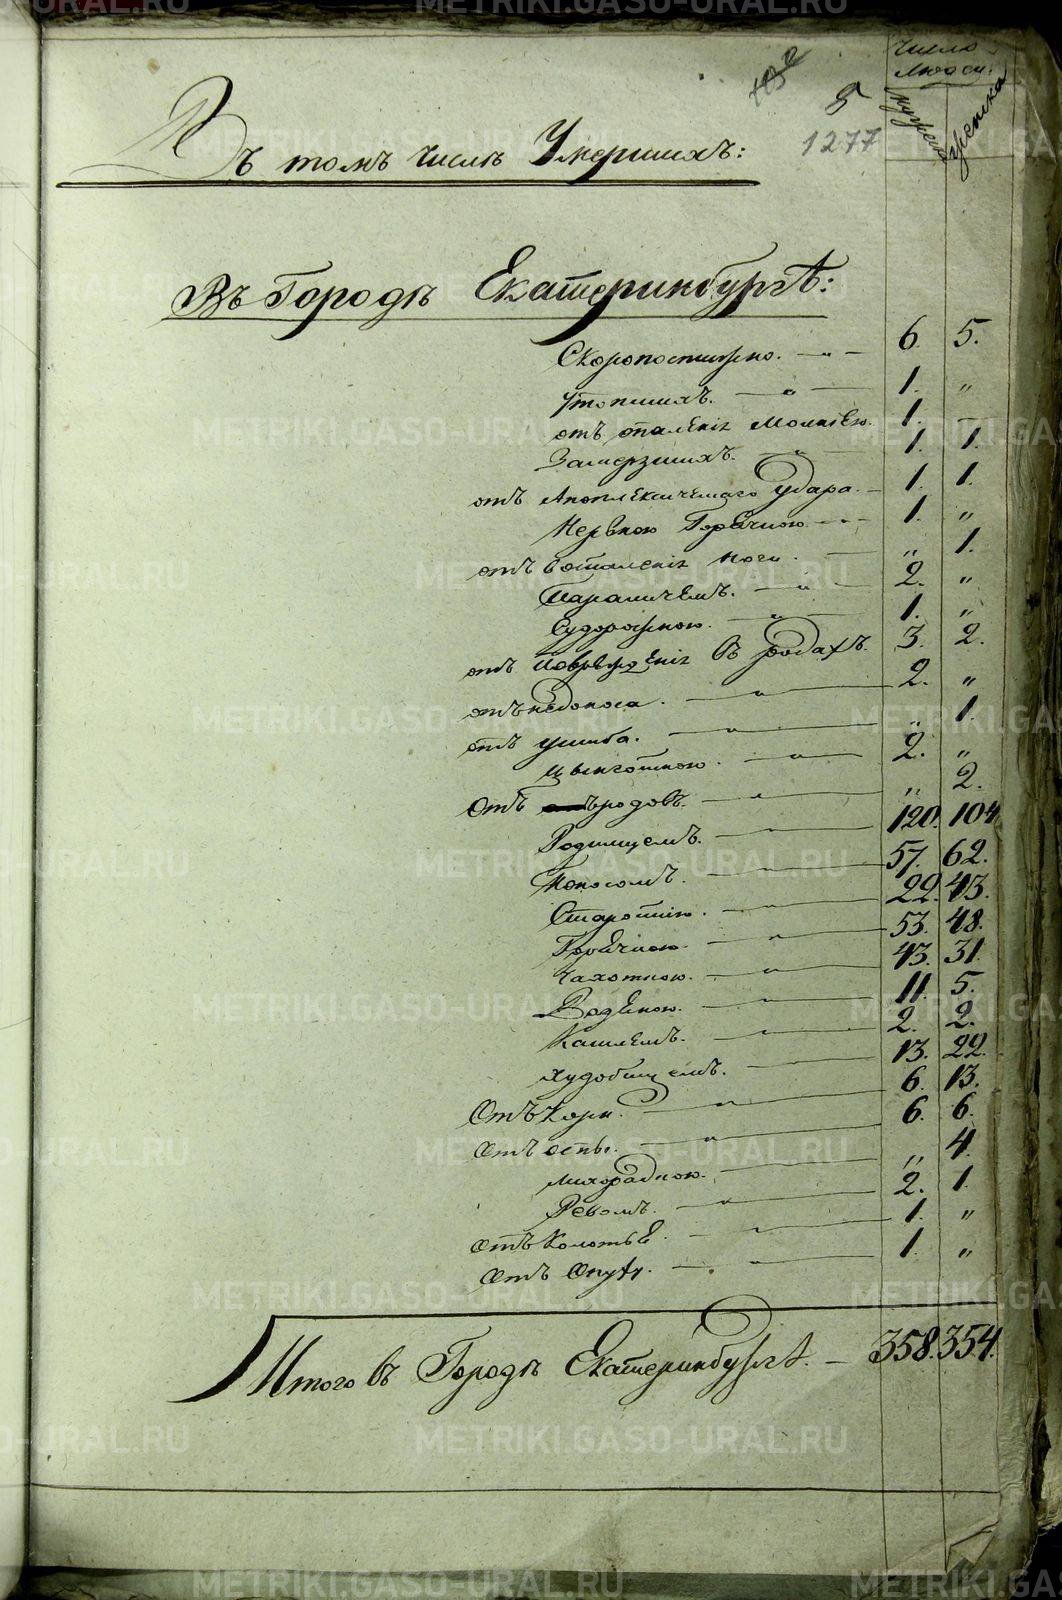 Число
людей.
мужеска
женска
5
1277
Въ томъ числѣ Умершихъ:
Въ Городѣ Екатеринбургѣ:
Скоропостижно. — „ — 6. 5.
Утопшихъ. — „ — 1. „
отъ опаленія Молніею. 1. —
Замерзшихъ. — „ — 1. 1.
отъ Апоплексическаго Удара. — 1. 1.
Нервною Горячкою — „ — 1. „
отъ Воспаленія — „ 1.
Параличемъ. — „ — 2. „
Судорожною. — „ — 1. „
отъ Поврежденія въ родахъ. 3. 2.
отъ недоноса. — „ — 2. „
отъ ушиба. — „ — „ 1.
Цынготною. — „ — 2. „
Отъ родовъ. — „ — „ 2.
Родимцемъ. — „ — 120. 104
Поносомъ. — „ — 57. 62.
Старостію. — „ — 22. 43.
Горячкою. — „ — 53. 48.
Чахоткою. — „ — 43. 31.
Водяною. — „ — 11. 5.
Кашлемъ. — „ — 2. 2.
Худобищемъ. — „ — 13. 22.
Отъ Кори. — „ — 6. 13.
Отъ оспы. — „ — 6. 6.
Лихорадкою. — „ 4.
Ревомъ. — „ — 2. 1.
Отъ Колотья. — „ — 1. „
Отъ Опухи. — „ — 1. „
Итого въ Городѣ Екатеринбургѣ. — 358. 354.
METRIKI.GASO-URAL.RU